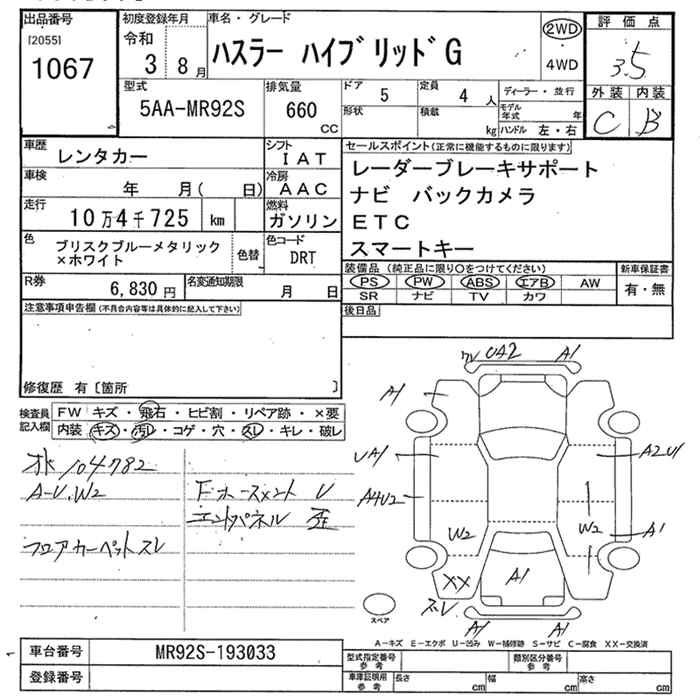 出品番号
[2055]
1067
初度登録年月
令和
3 8月
車名・グレード
ハスラー ハイブリッドG
2WD
4WD
評価点
3.5
外装 内装
C B
型式
5AA-MR92S
排気量
660
CC
ドア
5
定員
4 人
形状
積載
kg
ディーラー・並行
モデル年式 年
ハンドル 左・右
車歴
レンタカー
シフト
IAT
車検
年 月( 日)
冷房
AAC
走行
10万4千725 km
燃料
ガソリン
色
ブリスクブルーメタリック
×ホワイト
色替
色コード
DRT
R券
6,830円
名変通知期限
月 日
セールスポイント(正常に機能するものに限ります)
レーダーブレーキサポート
ナビ バックカメラ
ETC
スマートキー
装備品(純正品に限り○をつけてください)
PS PW ABS エアB AW
SR ナビ TV カワ
新車保証書
有・無
後日品
注意事項申告欄(不具合内容等は具体的に記入して下さい)
修復歴 有〔箇所 〕
検査員
記入欄
FW キズ・飛石・ヒビ割・リペア跡・×要
内装 キズ・汚レ・コゲ・穴・スレ・キレ・破レ
104782
A-U.W2
フロアカーペットスレ
U
エンドパネル 歪
ワレ UA2 A1
A1
UA1
A4U2
W2
XX
スレ
A1
A2U1
W2
A1
A1 A1
スペア
A-キズ E-エクボ U-凹み W-補修跡 S-サビ C-腐食 XX-交換済
車台番号
MR92S-193033
登録番号
型式指定番号
参考
類別区分番号
参考
車庫証明用
参考
長さ cm 幅 cm 高さ cm